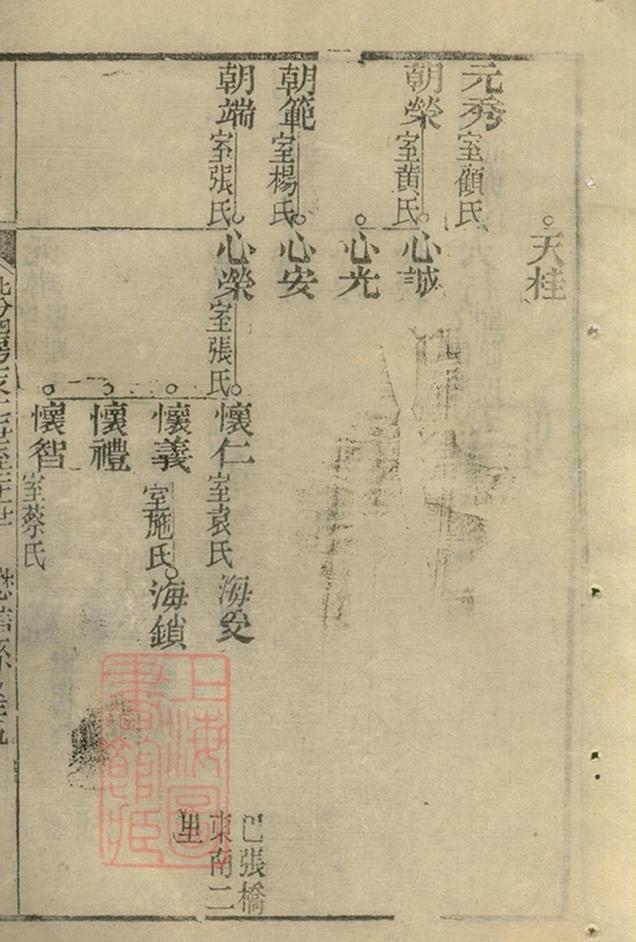 天桂
元秀室顧氏
朝榮室黄氏
心誠
心光
朝範室楊氏
心安
朝端室張氏
心榮室張氏
懷仁室袁氏
海
懷義室施氏
海鎖
懷禮
懷智室蔡氏
張橋
東南二
里
上海圖
書館藏